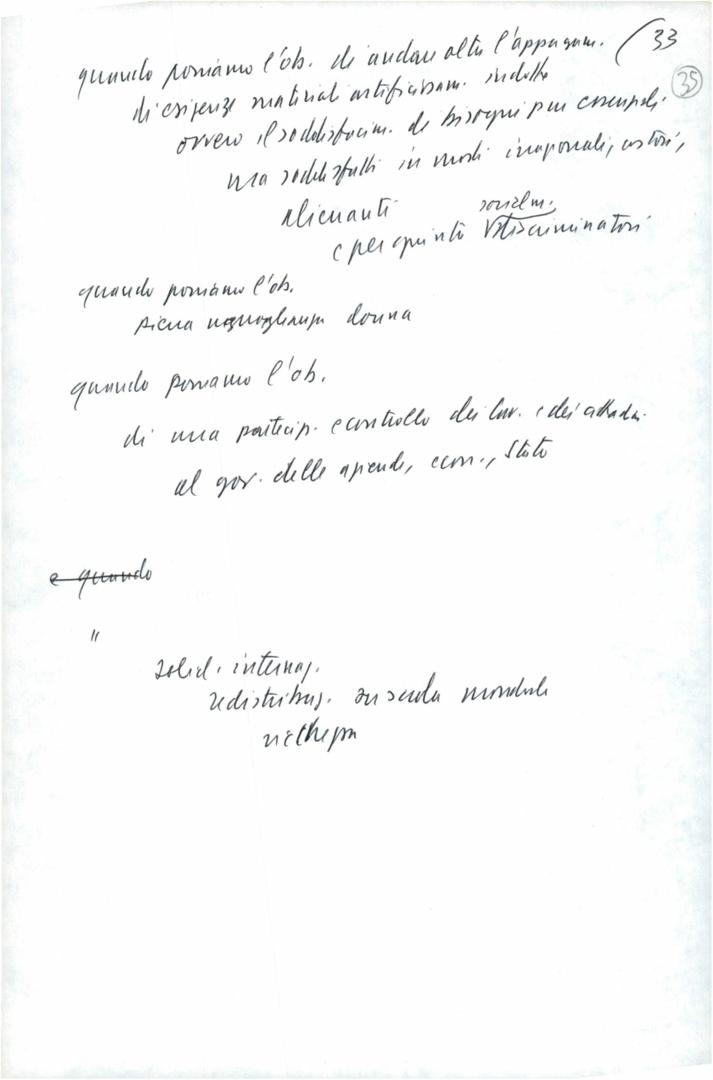 33
35
quando poniamo l'ob. di andare oltre l'appagam.
di esigenze materiali artificiosam. indotte
ovvero il soddisfacim. di bisogni pur essenziali
ma soddisfatti in modi irrazionali, costosi,
alienanti
socialm.
e per giunta discriminatori
quando poniamo l'ob.
piena uguaglianza donna
quando poniamo l'ob.
di una particip. e controllo dei lav. e dei cittadin.
al gov. delle aziende, econ., Stato
e quando
"
solid. internaz.
redistribuz. su scala mondiale
ricchezza